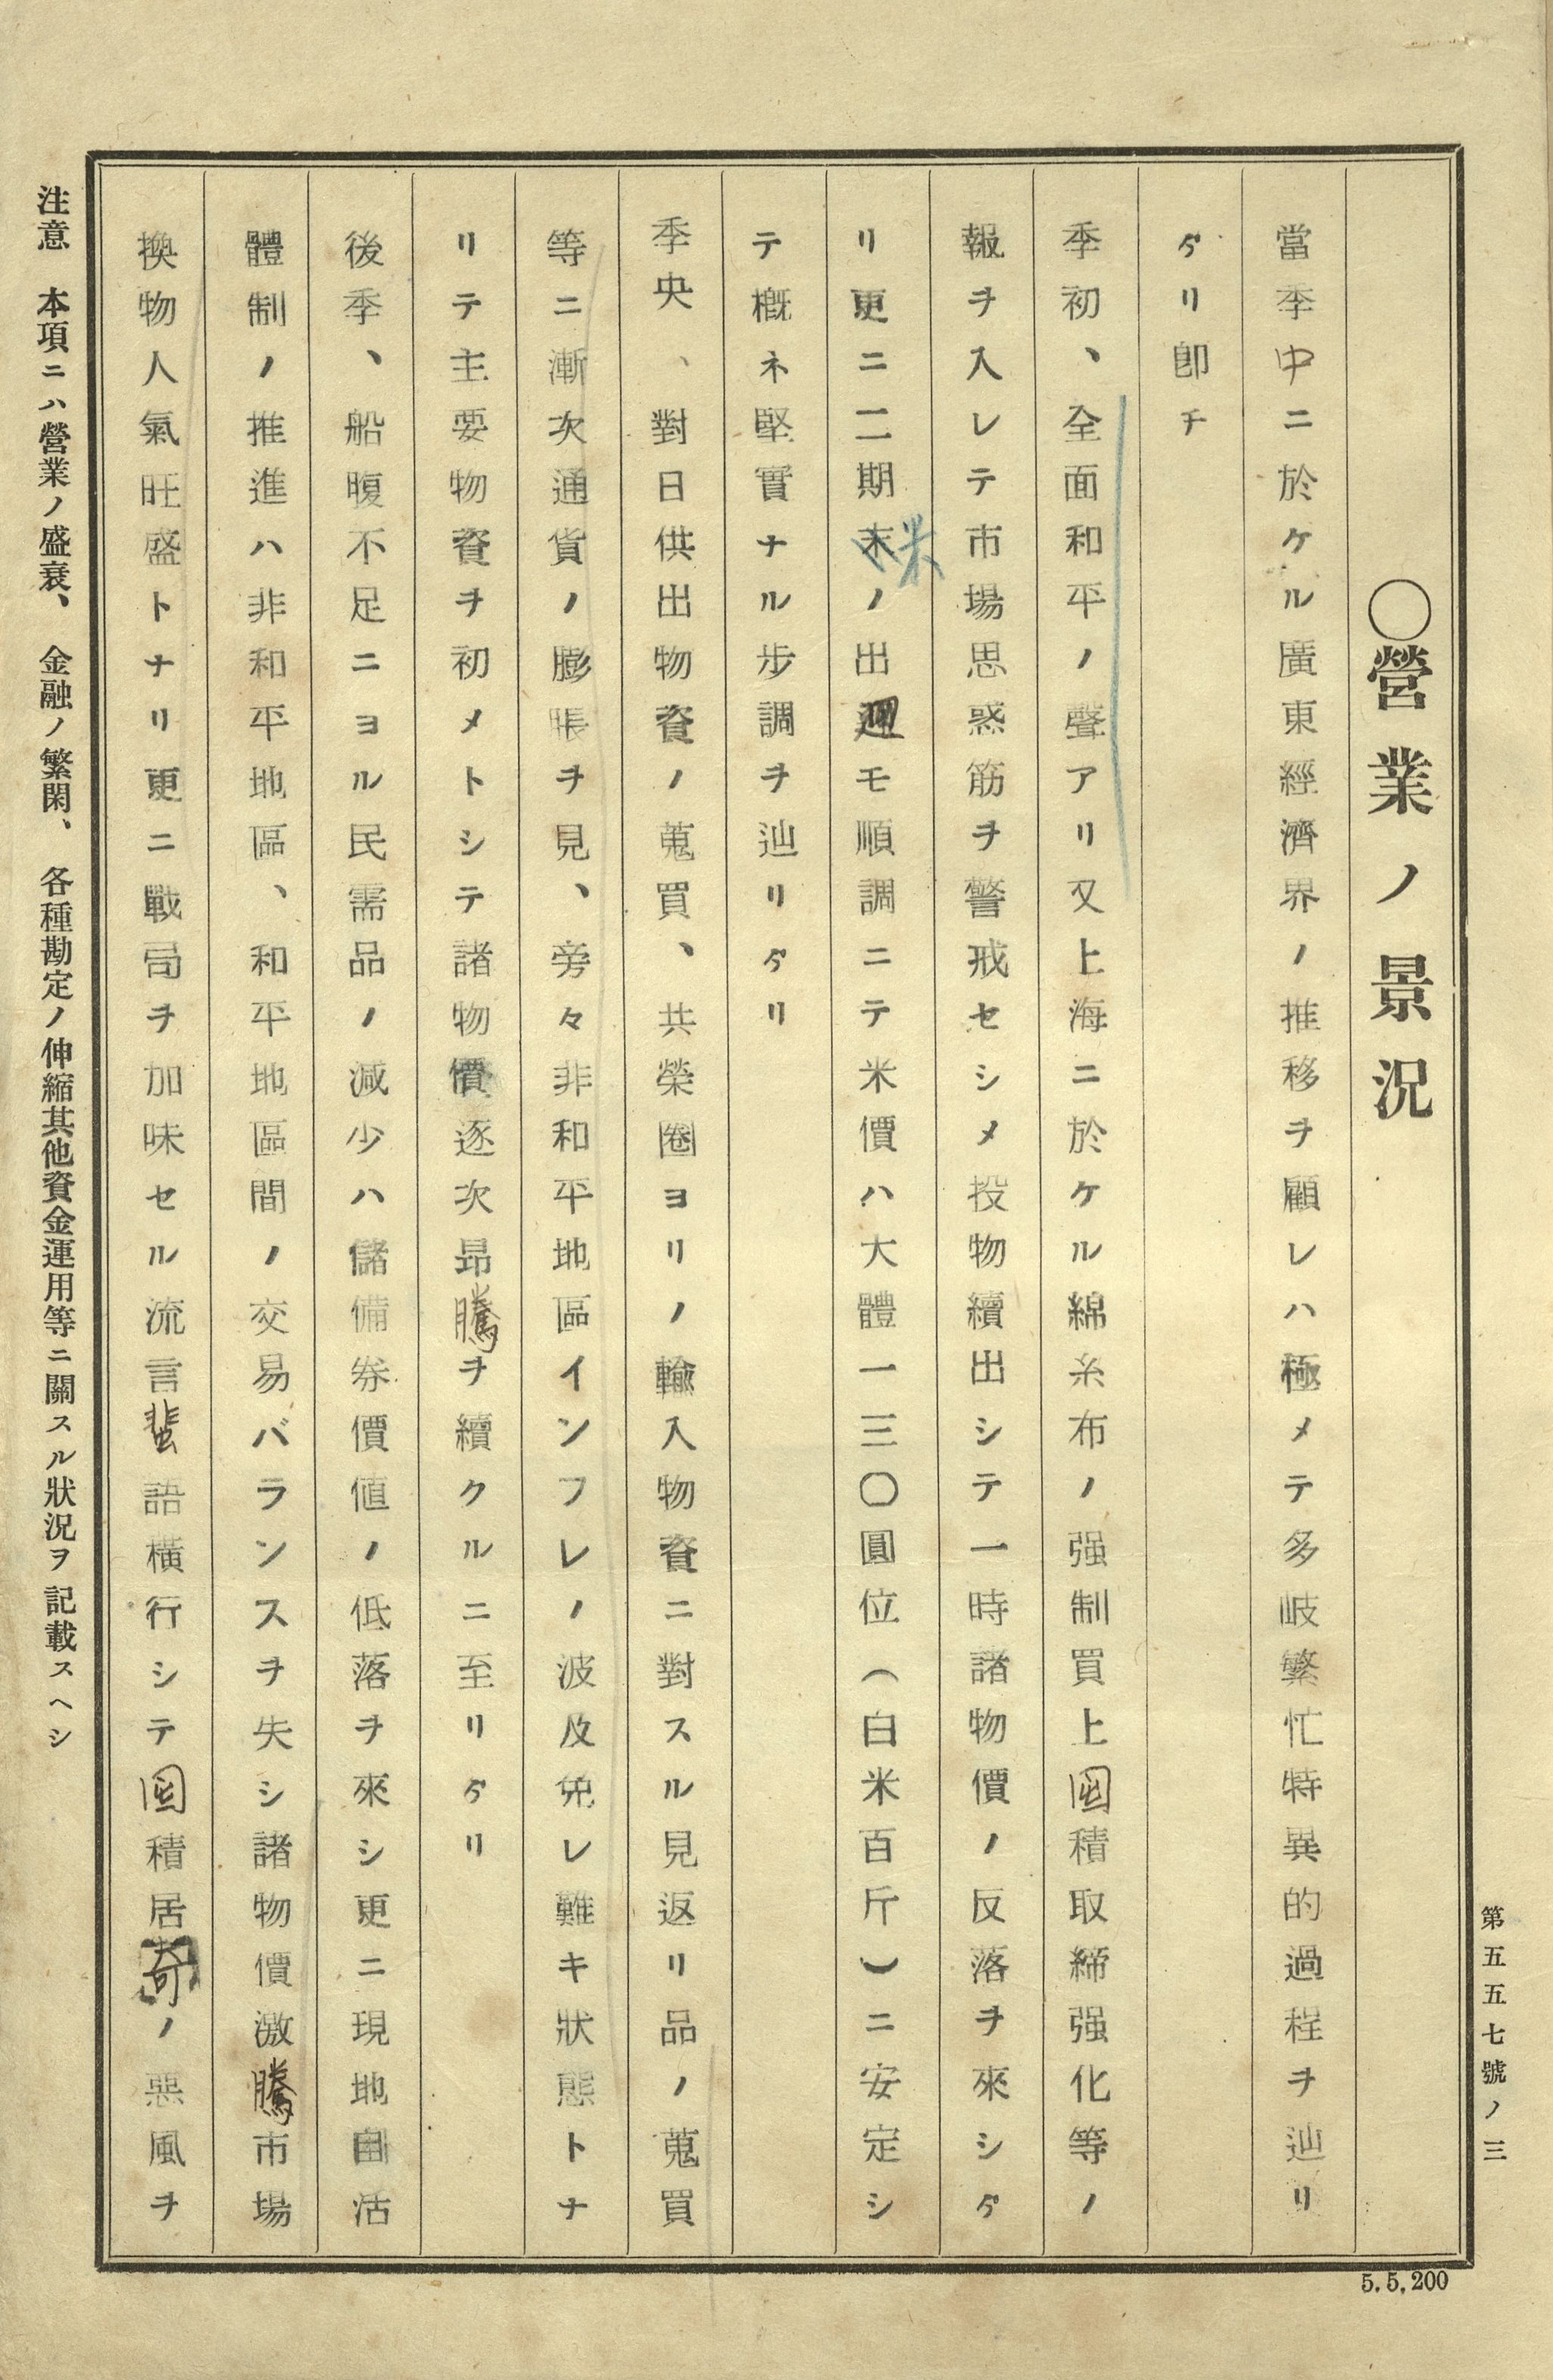 第五五七號ノ三
〇營業ノ景況
當季中ニ於ケル廣東經濟界ノ推移ヲ顧レハ極メテ多岐繁忙特異的過程ヲ辿リ
タリ卽チ
季初、全面和平ノ聲アリ又上海ニ於ケル綿糸布ノ强制買上囤積取締强化等ノ
報ヲ入レテ市場思惑筋ヲ警戒セシメ投物續出シテ一時諸物價ノ反落ヲ來シタ
リ更ニ二期米ノ出廻モ順調ニテ米價ハ大體一三〇圓位(白米百斤)ニ安定シ
テ槪ネ堅實ナル步調ヲ辿リタリ
季央、對日供出物資ノ蒐買、共榮圈ヨリノ輸入物資ニ對スル見返リ品ノ蒐買
等ニ漸次通貨ノ膨脹ヲ見、旁々非和平地區インフレノ波及免レ難キ狀態トナ
リテ主要物資ヲ初メトシテ諸物價逐次昂騰ヲ續クルニ至リタリ
後季、船腹不足ニヨル民需品ノ減少ハ儲備券價値ノ低落ヲ來シ更ニ現地自活
體制ノ推進ハ非和平地區、和平地區間ノ交易バランスヲ失シ諸物價激騰市場
換物人氣旺盛トナリ更ニ戰局ヲ加味セル流言蜚語橫行シテ囤積居奇ノ惡風ヲ
注意 本項ニハ營業ノ盛衰、金融ノ繁閑、各種勘定ノ伸縮其他資金運用等ニ關スル狀況ヲ記載スヘシ
5.5,200